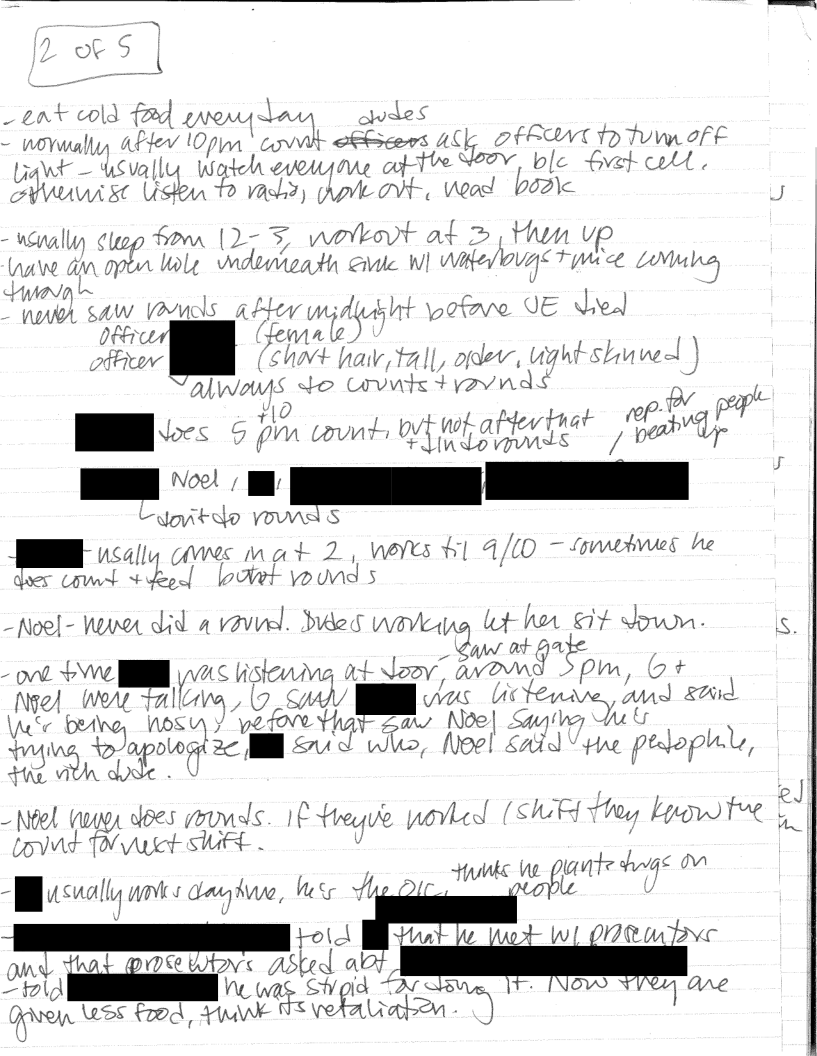 2 OF 5
- eat cold food everyday dudes
- normally after 10pm count officers ask officers to turn off
light - usually watch everyone at the door, b/c first cell.
otherwise listen to radio, work out, read book
- usually sleep from 12-3, workout at 3, then up
- have an open hole underneath sink w/ waterbugs + mice coming
through
- never saw rounds after midnight before JE died
officer (female)
officer (short hair, tall, older, light skinned)
always do counts + rounds
+10
does 5 pm count, but not after that rep. for
+ didn do rounds / beating people
up
Noel, ,
don't do rounds
- - usally comes in at 2, works til 9/10 - sometimes he
does count + feed but not rounds
- Noel - never did a round. Dudes working let her sit down.
- saw at gate
- one time was listening at door, around 5pm, G +
Noel were talking, G saw was listening, and said
he's being nosy, before that saw Noel saying he's
trying to apologize, said who, Noel said the pedophile,
the rich dude.
- Noel never does rounds. If they've worked 1 shift they know the
count for next shift.
- usually works daytime, he's the OIC, thinks he plants drugs on
people
- told that he met w/ prosecutors
and that prosecutors asked abt
- told he was stupid for doing it. Now they are
given less food, think its retaliation.
s
s
s.
ed